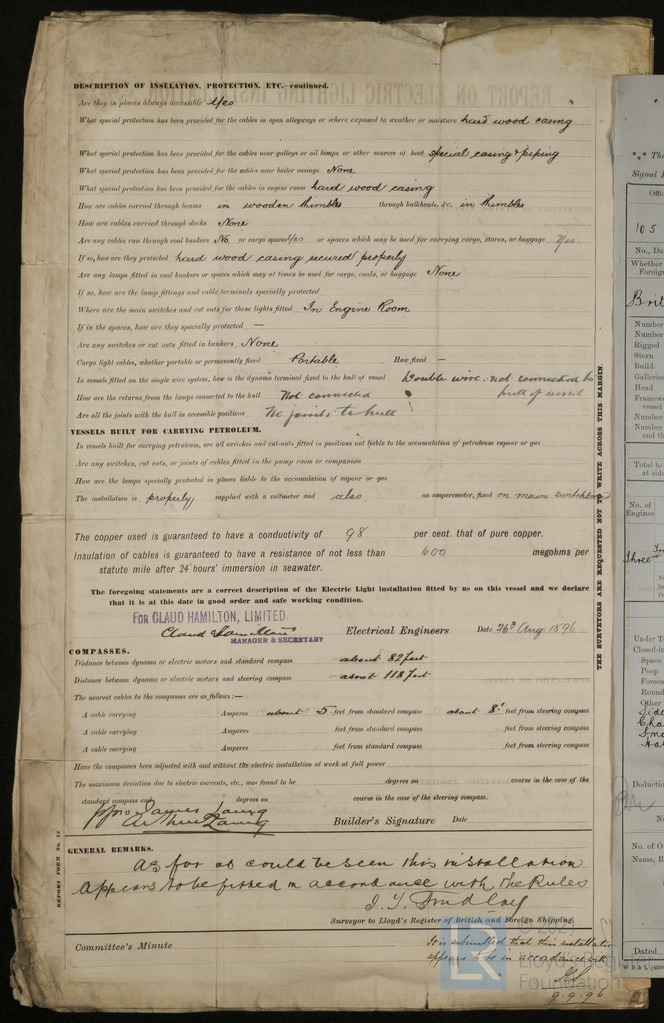 DESCRIPTION OF INSULATION, PROTECTION, ETC.—continued.
Are they in places always accessible Yes
What special protection has been provided for the cables in open alleyways or where exposed to weather or moisture hard wood casing
What special protection has been provided for the cables near galleys or oil lamps or other sources of heat special casing & piping
What special protection has been provided for the cables near boiler casings None
What special protection has been provided for the cables in engine room hard wood casing
How are cables carried through beams in wooden thimbles through bulkheads, &c. in thimbles
How are cables carried through decks None
Are any cables run through coal bunkers No or cargo spaces Yes or spaces which may be used for carrying cargo, stores, or baggage Yes.
If so, how are they protected hard wood casing secured properly
Are any lamps fitted in coal bunkers or spaces which may at times be used for cargo, coals, or baggage None
If so, how are the lamp fittings and cable terminals specially protected
Where are the main switches and cut outs for these lights fitted In Engine Room
If in the spaces, how are they specially protected —
Are any switches or cut outs fitted in bunkers None
Cargo light cables, whether portable or permanently fixed Portable How fixed —
In vessels fitted on the single wire system, how is the dynamo terminal fixed to the hull of vessel Double wire: not connected to
How are the returns from the lamps connected to the hull Not connected hull of vessel
Are all the joints with the hull in accessible positions No joints to hull
VESSELS BUILT FOR CARRYING PETROLEUM.
In vessels built for carrying petroleum, are all switches and cut-outs fitted in positions not liable to the accumulation of petroleum vapour or gas
Are any switches, cut outs, or joints of cables fitted in the pump room or companion
How are the lamps specially protected in places liable to the accumulation of vapour or gas
The installation is properly supplied with a voltmeter and also an amperemeter, fixed on main switchboard
The copper used is guaranteed to have a conductivity of 98 per cent. that of pure copper.
Insulation of cables is guaranteed to have a resistance of not less than 600 megohms per
statute mile after 24 hours' immersion in seawater.
The foregoing statements are a correct description of the Electric Light installation fitted by us on this vessel and we declare
that it is at this date in good order and safe working condition.
FOR CLAUD HAMILTON, LIMITED.
Claud Hamilton Electrical Engineers Date 26th Aug 1896
MANAGER & SECRETARY
COMPASSES.
Distance between dynamo or electric motors and standard compass about 82 feet
Distance between dynamo or electric motors and steering compass about 118 feet
The nearest cables to the compasses are as follows:—
A cable carrying Amperes about 5 feet from standard compass about 8' feet from steering compass
A cable carrying Amperes feet from standard compass feet from steering compass
A cable carrying Amperes feet from standard compass feet from steering compass
Have the compasses been adjusted with and without the electric installation at work at full power
The maximum deviation due to electric currents, etc., was found to be degrees on course in the case of the
standard compass and degrees on course in the case of the steering compass.
ppro James Laing
Arthur Laing Builder's Signature Date
GENERAL REMARKS.
As far as could be seen this installation
appears to be fitted in accordance with the Rules
Surveyor to Lloyd's Register of British and Foreign Shipping.
Committee's Minute
It is submitted that this installation
appears to be in accordance with
9.9.96
REPORT FORM No. 13
THE SURVEYORS ARE REQUESTED NOT TO WRITE ACROSS THIS MARGIN
LR
© 2021
Lloyd's Register
Foundation
The
Signal
Offic
10 5
No., Da
Whether
Foreig
Brit
Number
Number
Rigged
Stern
Build
Galleries
Head
Framew
vessel
Number
Number
and th
Total to
at side
No. of
Engines
Three
Under T
Closed-in
Space
Poop
Foreca
Round
Other
Side
Cha
Deductio
No. of O
Name, R
Dated